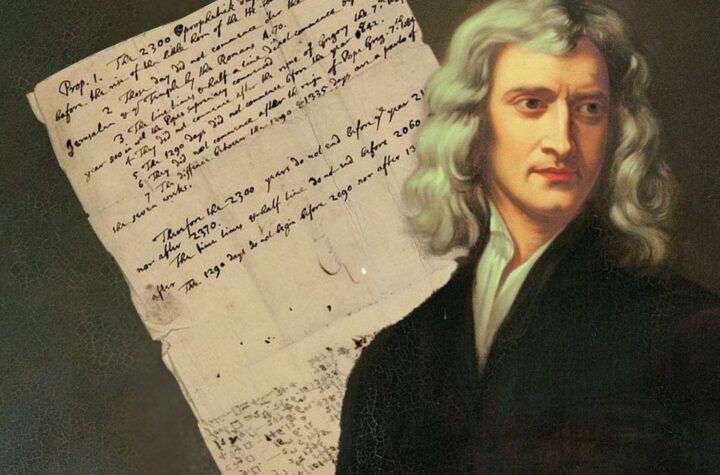 Prop. 1. The 2300 prophetick d
before the rise of the little horn of the He Goat
2 Those day did not commence
Jerusalem & yᵉ Temple by the Romans A. 70.
3. The time times & half a time did not commence be
year 800 in wᶜʰ the Popes supremacy commenced
4. They did not commence after the reigne of Gregory the 7ᵗʰ
5 The 1290 days did not commence before the year 842.
6 They did not commence after the reign of Pope Greg. 7ᵗʰ 1084
7 The diffence between the 1290 & 1335 days are a parts of
the seven weeks.
Therfore the 2300 years do not end before yᵉ year 21
nor after 2370.
The time times & half time do not end before 2060
nor after
The 1290 days do not begin before 2090 nor after 13